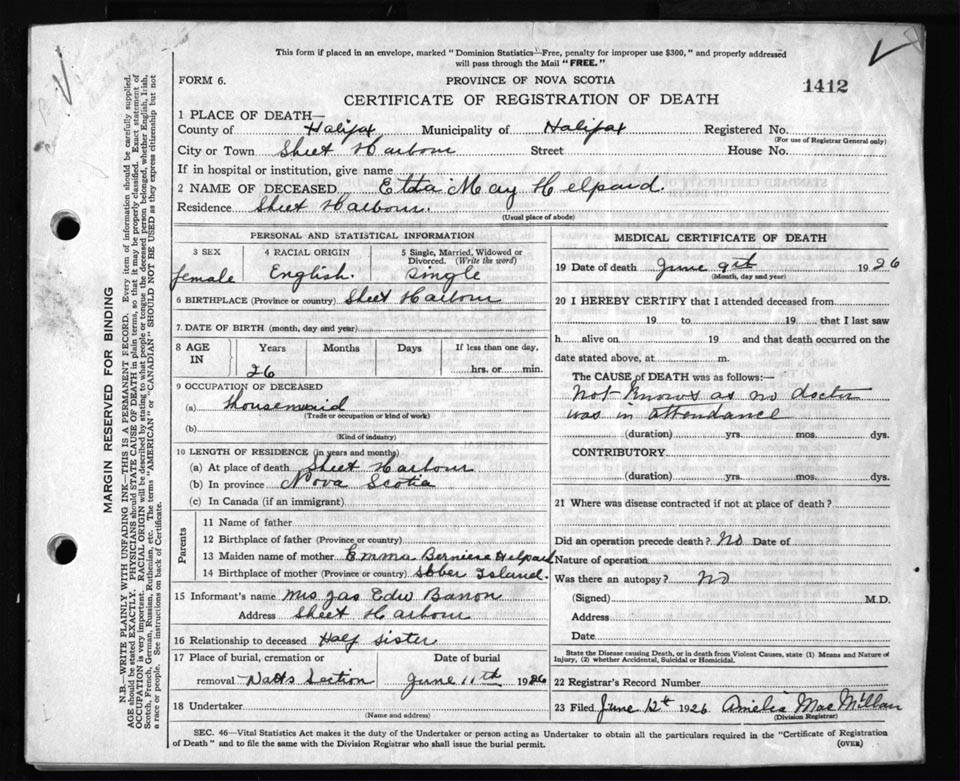 This form if placed in an envelope, marked "Dominion Statistics—Free, penalty for improper use $300," and properly addressed
will pass through the Mail "FREE."
FORM 6. PROVINCE OF NOVA SCOTIA 1412
CERTIFICATE OF REGISTRATION OF DEATH
1 PLACE OF DEATH—
County of Halifax Municipality of Halifax Registered No.
(For use of Registrar General only)
City or Town Sheet Harbour Street House No.
If in hospital or institution, give name
2 NAME OF DECEASED Etta May Helpard.
Residence Sheet Harbour.
(Usual place of abode)
PERSONAL AND STATISTICAL INFORMATION
3 SEX 4 RACIAL ORIGIN 5 Single, Married, Widowed or
Divorced. (Write the word)
female English. single
6 BIRTHPLACE (Province or country) Sheet Harbour
7. DATE OF BIRTH (month, day and year)
8 AGE IN Years Months Days If less than one day,
26 hrs. or min.
9 OCCUPATION OF DECEASED
(a) Housemaid
(Trade or occupation or kind of work)
(b)
(Kind of industry)
10 LENGTH OF RESIDENCE (in years and months)
(a) At place of death Sheet Harbour
(b) In province Nova Scotia
(c) In Canada (if an immigrant)
Parents
11 Name of father
12 Birthplace of father (Province or country)
13 Maiden name of mother Emma Berniece Helpard
14 Birthplace of mother (Province or country) Sober Island.
15 Informant's name Mrs Jas Edw
Address Sheet Harbour
16 Relationship to deceased Half sister
17 Place of burial, cremation or Date of burial
removal Watts Section June 11th 1926
18 Undertaker
(Name and address)
MEDICAL CERTIFICATE OF DEATH
19 Date of death June 9th 1926
(Month, day and year)
20 I HEREBY CERTIFY that I attended deceased from
19 to 19 that I last saw
h alive on 19 and that death occurred on the
date stated above, at m.
The CAUSE of DEATH was as follows:—
Not Known as no doctor
was in attendance
(duration) yrs. mos. dys.
CONTRIBUTORY
(duration) yrs. mos. dys.
21 Where was disease contracted if not at place of death?
Did an operation precede death? No Date of
Nature of operation
Was there an autopsy? No
(Signed) M.D.
Address
Date
State the Disease causing Death, or in death from Violent Causes, state (1) Means and Nature of
Injury, (2) whether Accidental, Suicidal or Homicidal.
22 Registrar's Record Number
23 Filed June 12th 1926 Amelia MacMillan
(Division Registrar)
SEC. 46—Vital Statistics Act makes it the duty of the Undertaker or person acting as Undertaker to obtain all the particulars required in the "Certificate of Registration
of Death" and to file the same with the Division Registrar who shall issue the burial permit. (OVER)
MARGIN RESERVED FOR BINDING
N.B.—WRITE PLAINLY WITH UNFADING INK—THIS IS A PERMANENT RECORD. Every item of information should be carefully supplied.
AGE should be stated EXACTLY. PHYSICIANS should STATE CAUSE OF DEATH in plain terms, so that it may be properly classified. Exact statement of
OCCUPATION is very important. RACIAL ORIGIN will be described by stating to what people or tongue the deceased person belonged, whether English, Irish,
Scotch, French, German, Russian, Ruthenian, etc. The terms "AMERICAN" or "CANADIAN" SHOULD NOT BE USED as they express citizenship but not
a race or people. See instructions on back of Certificate.